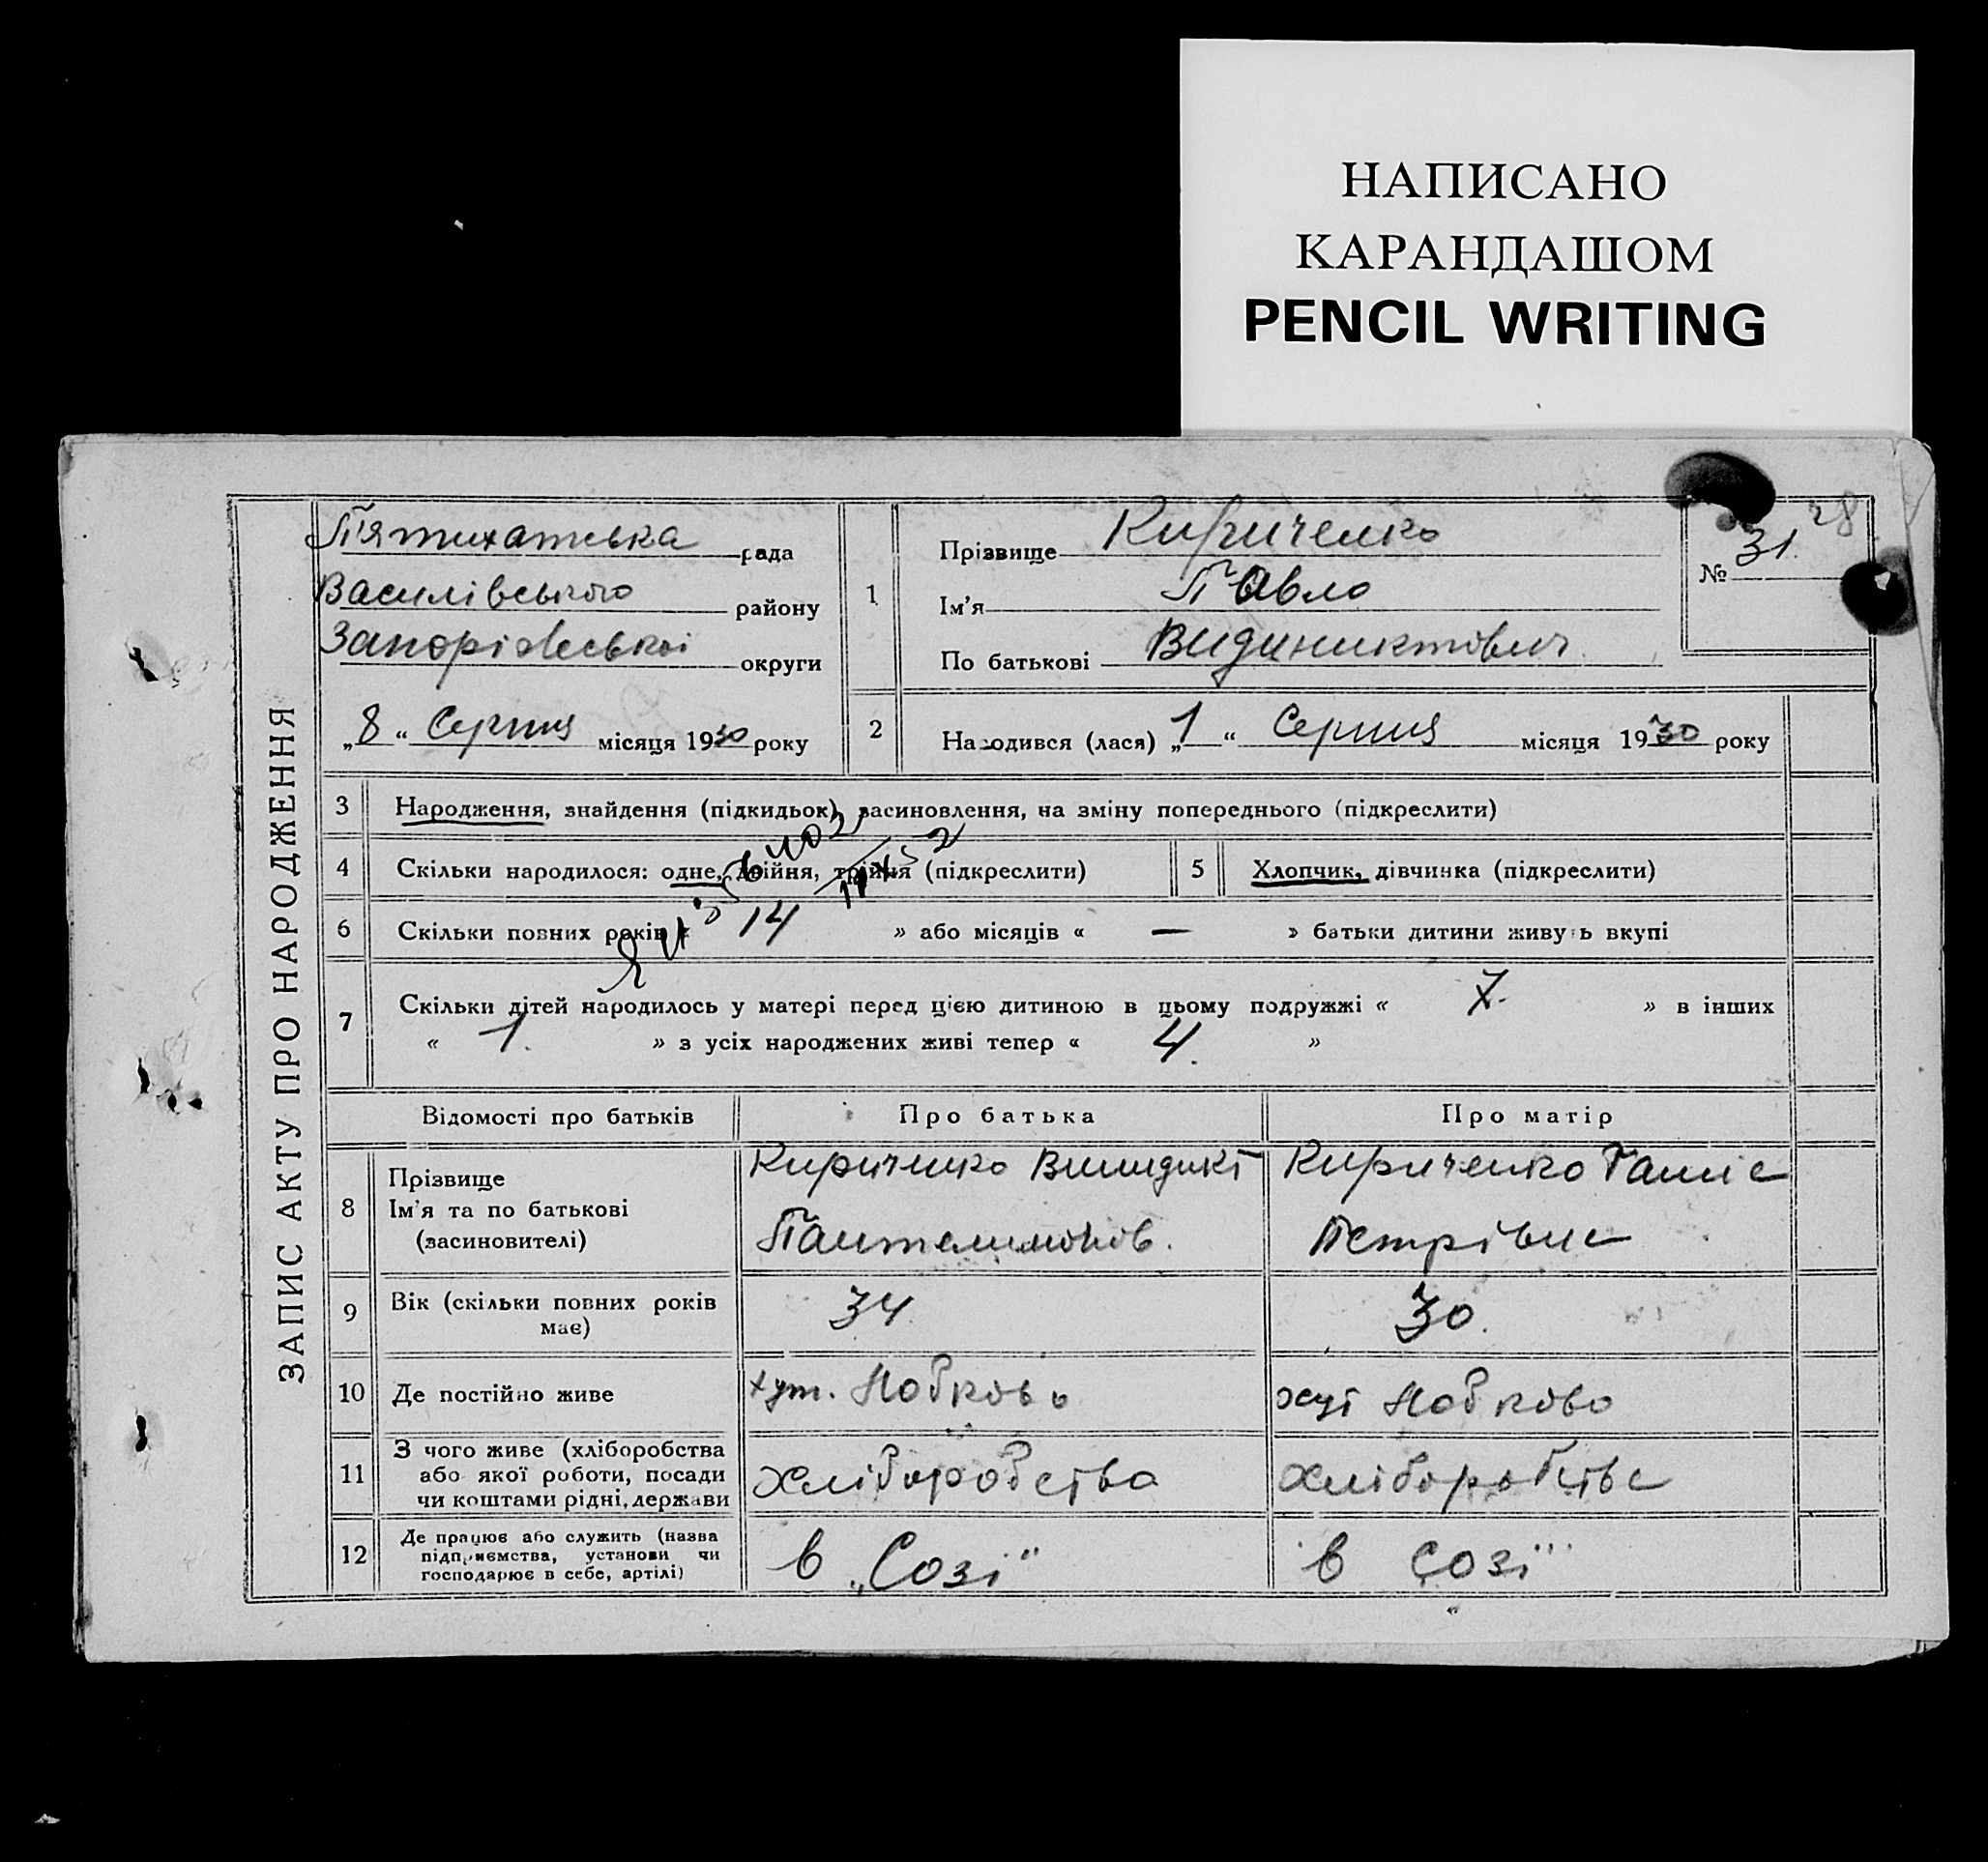 НАПИСАНО
КАРАНДАШОМ
PENCIL WRITING
ЗАПИС АКТУ ПРО НАРОДЖЕННЯ
Пятихатська рада
Василівського району
Запоріжської округи
„8“ Серпня місяця 1930 року
1
Прізвище Кириченко
Ім'я Павло
По батькові Видиниктович
№ 31.
28
2
Народився (лася) „1“ Серпня місяця 1930 року
3 Народження, знайдення (підкидьок), засиновлення, на зміну попереднього (підкреслити)
4 Скільки народилося: одне, двійня, трійня (підкреслити)
5 Хлопчик, дівчинка (підкреслити)
6 Скільки повних років « 14 » або місяців « — » батьки дитини живуть вкупі
7 Скільки дітей народилось у матері перед цією дитиною в цьому подружжі « 7. » в інших
« 1. » з усіх народжених живі тепер « 4. »
Відомості про батьків Про батька Про матір
8 Прізвище
Ім'я та по батькові
(засиновителі)
Кириченко
Пантелимонов.
Кириченко Ганнє
Петрівне
9 Вік (скільки повних років
має)
34
30.
10 Де постійно живе
хут.
хут
11 З чого живе (хліборобства
або якої роботи, посади
чи коштами рідні, держави
Хліборобства
Хліборобстве
12 Де працює або служить (назва
підприємства, установи чи
господарює в себе, артілі)
в „Созі“
в Созі"